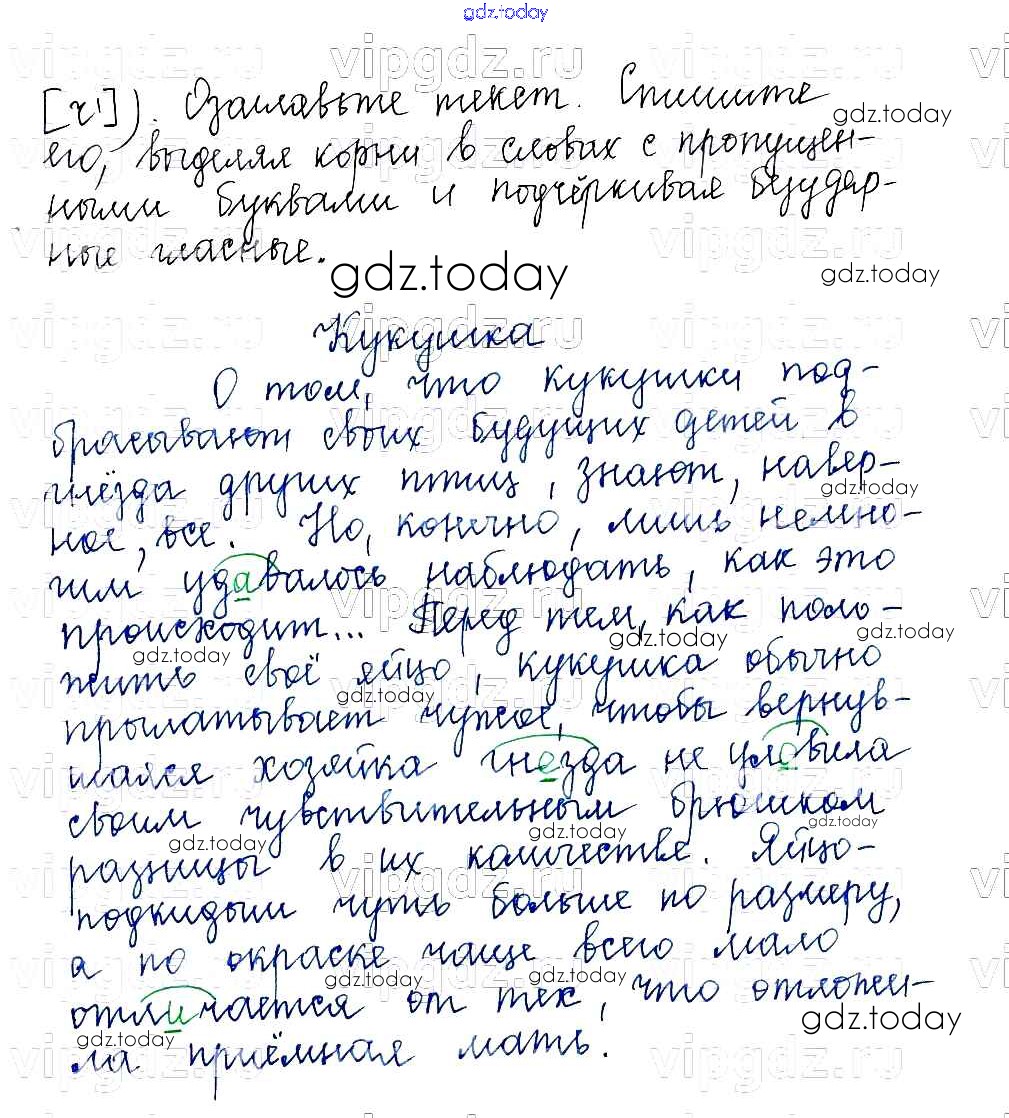 gdz.today
[ч1]). Озаглавьте текст. Спишите
его, выделяя корни в словах с пропущен-
ными буквами и подчёркивая безудар-
ные гласные.
Кукушка
О том, что кукушки под-
брасывают своих будущих детей в
гнёзда других птиц, знают, навер-
ное, все. Но, конечно, лишь немно-
гим удавалось наблюдать, как это
происходит... Перед тем, как поло-
жить своё яйцо, кукушка обычно
проглатывает чужое, чтобы вернув-
шаяся хозяйка гнезда не уловила
своим чувствительным брюшком
разницы в их количестве. Яйцо-
подкидыш чуть больше по размеру,
а по окраске чаще всего мало
отличается от тех, что отложи-
ла приёмная мать.